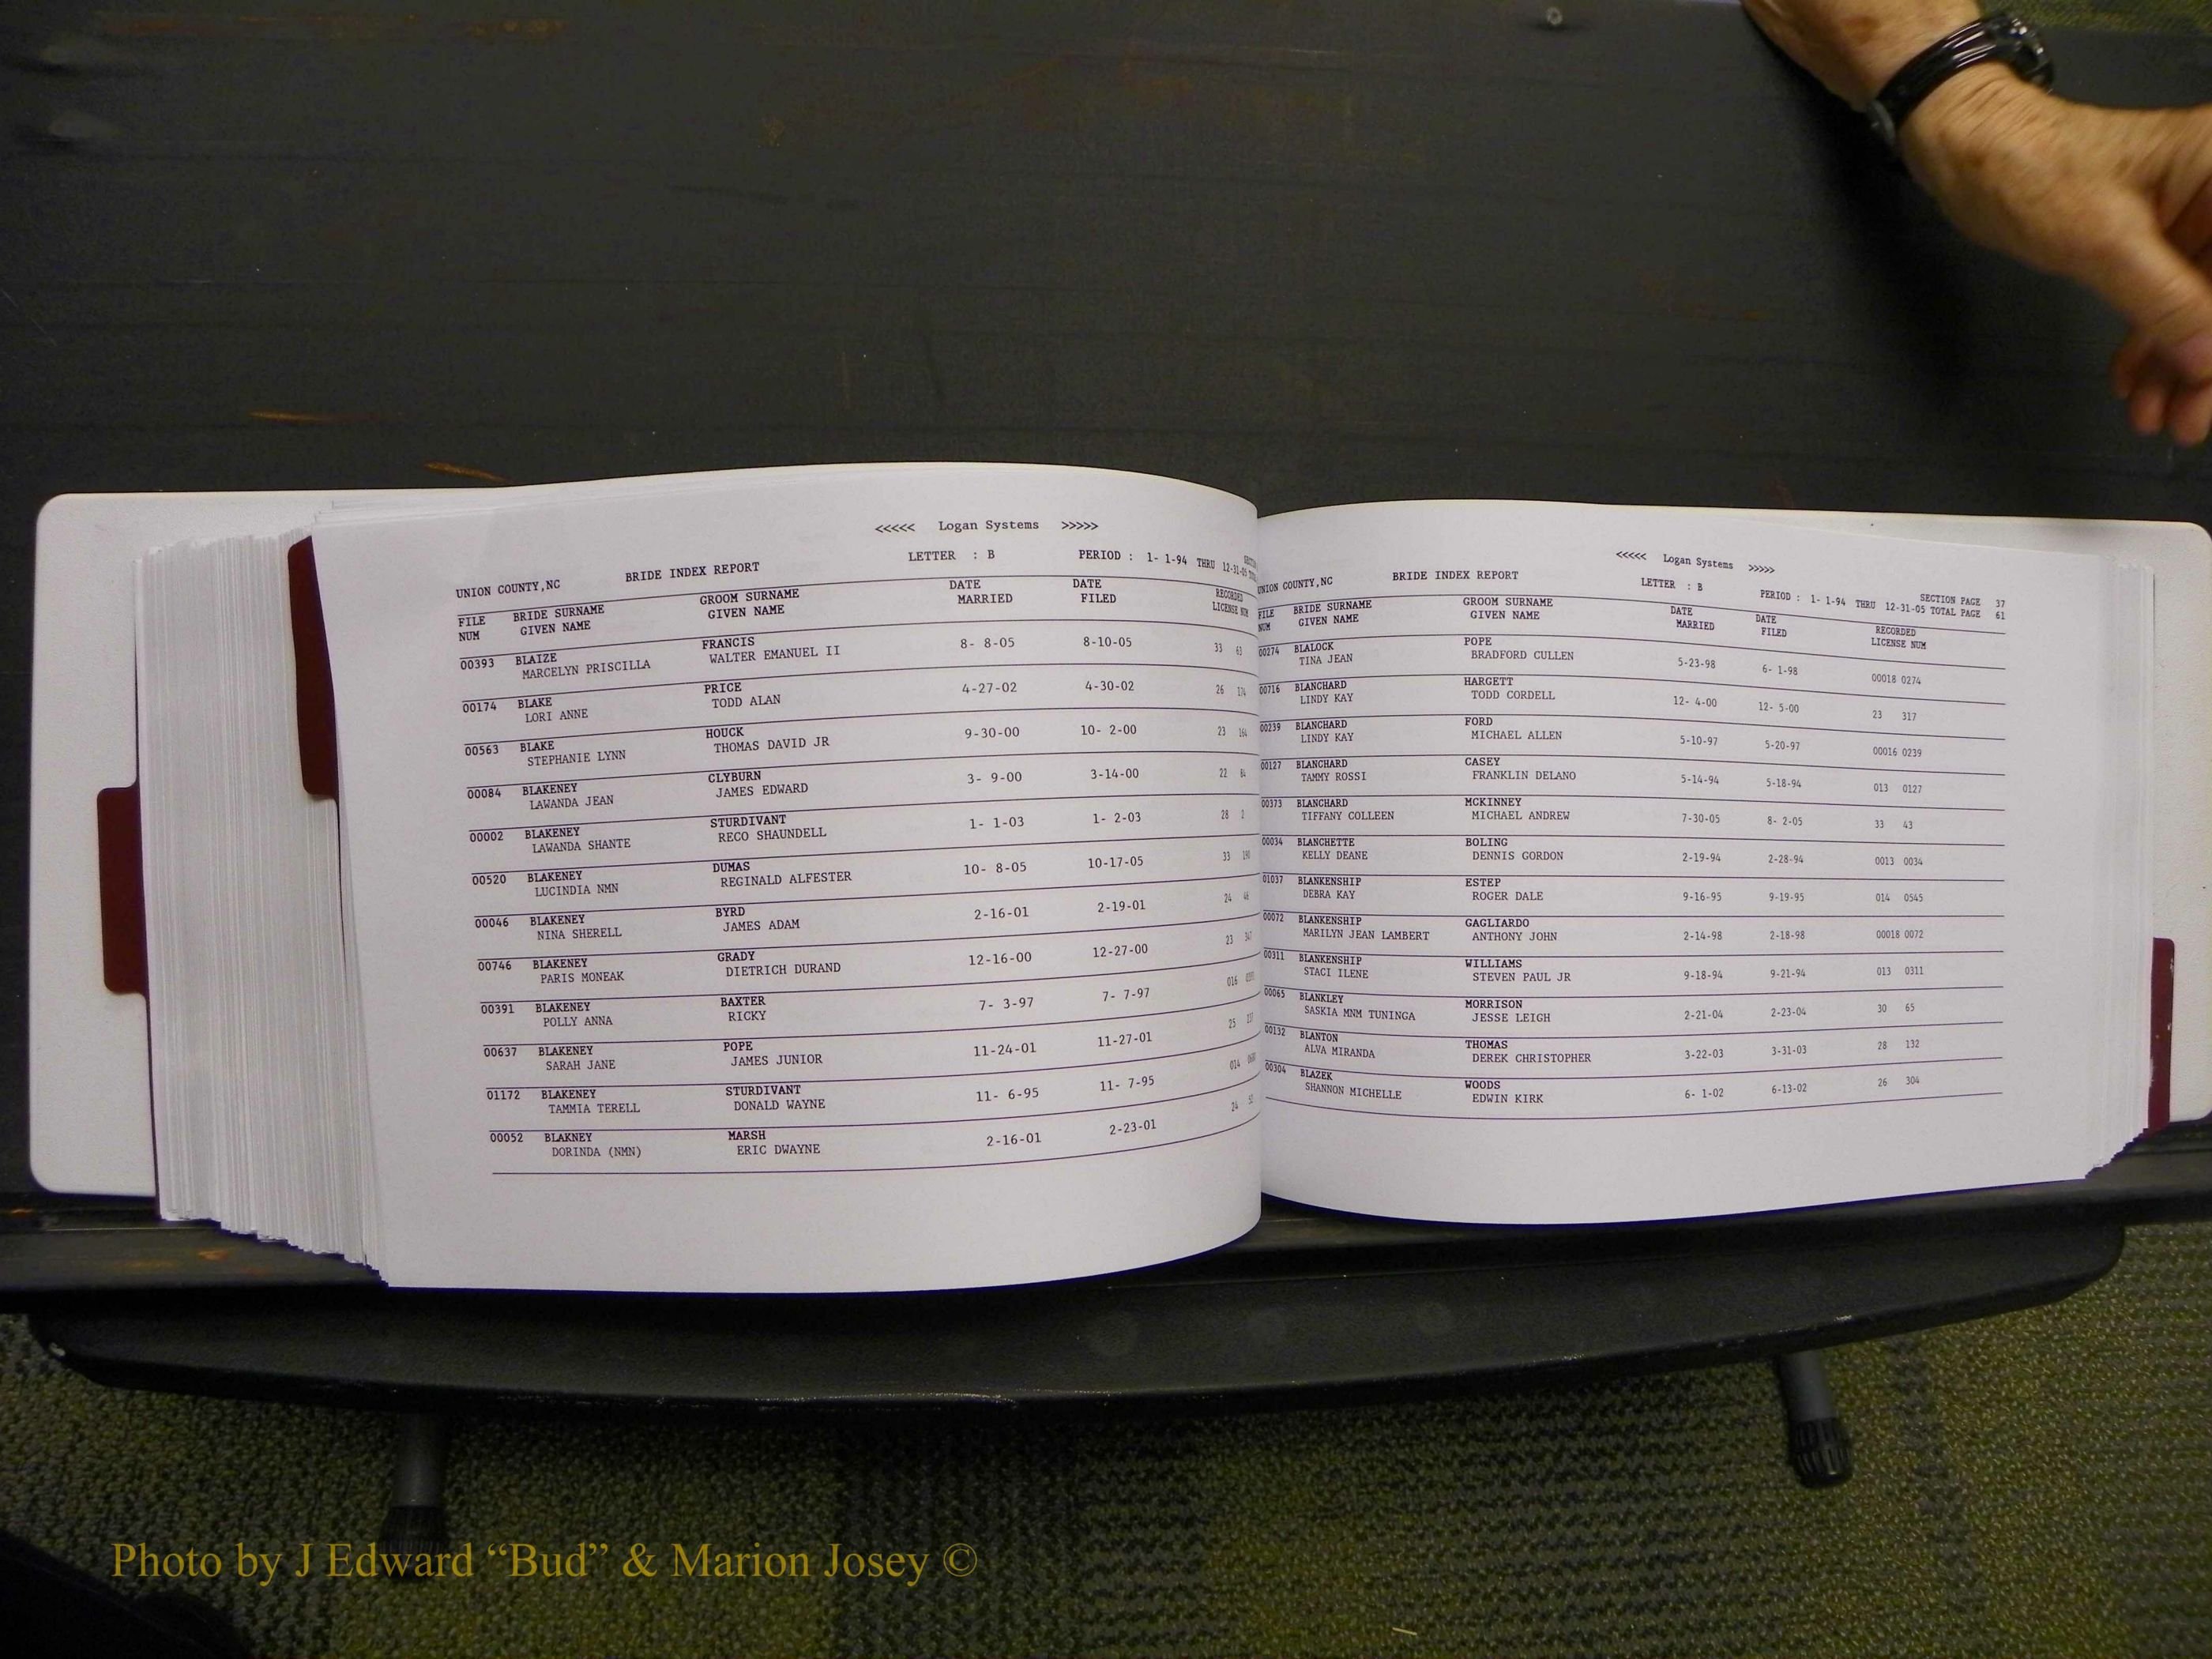 <<<<< Logan Systems >>>>>
UNION COUNTY,NC BRIDE INDEX REPORT LETTER : B PERIOD : 1- 1-94 THRU 12-31-05
FILE BRIDE SURNAME GROOM SURNAME DATE DATE RECORDED
NUM GIVEN NAME GIVEN NAME MARRIED FILED LICENSE NUM
00393 BLAIZE FRANCIS 8- 8-05 8-10-05 33 63
MARCELYN PRISCILLA WALTER EMANUEL II
00174 BLAKE PRICE 4-27-02 4-30-02 26 174
LORI ANNE TODD ALAN
00563 BLAKE HOUCK 9-30-00 10- 2-00 23 164
STEPHANIE LYNN THOMAS DAVID JR
00084 BLAKENEY CLYBURN 3- 9-00 3-14-00 22 84
LAWANDA JEAN JAMES EDWARD
00002 BLAKENEY STURDIVANT 1- 1-03 1- 2-03 28 2
LAWANDA SHANTE RECO SHAUNDELL
00520 BLAKENEY DUMAS 10- 8-05 10-17-05 33 190
LUCINDIA NMN REGINALD ALFESTER
00046 BLAKENEY BYRD 2-16-01 2-19-01 24 46
NINA SHERELL JAMES ADAM
00746 BLAKENEY GRADY 12-16-00 12-27-00 23 347
PARIS MONEAK DIETRICH DURAND
00391 BLAKENEY BAXTER 7- 3-97 7- 7-97 016
POLLY ANNA RICKY
00637 BLAKENEY POPE 11-24-01 11-27-01 25
SARAH JANE JAMES JUNIOR
01172 BLAKENEY STURDIVANT 11- 6-95 11- 7-95 014
TAMMIA TERELL DONALD WAYNE
00052 BLAKNEY MARSH 2-16-01 2-23-01 24 52
DORINDA (NMN) ERIC DWAYNE
<<<<< Logan Systems >>>>>
UNION COUNTY,NC BRIDE INDEX REPORT LETTER : B SECTION PAGE 37
PERIOD : 1- 1-94 THRU 12-31-05 TOTAL PAGE 61
FILE BRIDE SURNAME GROOM SURNAME DATE DATE RECORDED
NUM GIVEN NAME GIVEN NAME MARRIED FILED LICENSE NUM
00274 BLALOCK POPE 5-23-98 6- 1-98 00018 0274
TINA JEAN BRADFORD CULLEN
00716 BLANCHARD HARGETT 12- 4-00 12- 5-00 23 317
LINDY KAY TODD CORDELL
00239 BLANCHARD FORD 5-10-97 5-20-97 00016 0239
LINDY KAY MICHAEL ALLEN
00127 BLANCHARD CASEY 5-14-94 5-18-94 013 0127
TAMMY ROSSI FRANKLIN DELANO
00373 BLANCHARD MCKINNEY 7-30-05 8- 2-05 33 43
TIFFANY COLLEEN MICHAEL ANDREW
00034 BLANCHETTE BOLING 2-19-94 2-28-94 0013 0034
KELLY DEANE DENNIS GORDON
01037 BLANKENSHIP ESTEP 9-16-95 9-19-95 014 0545
DEBRA KAY ROGER DALE
00072 BLANKENSHIP GAGLIARDO 2-14-98 2-18-98 00018 0072
MARILYN JEAN LAMBERT ANTHONY JOHN
00311 BLANKENSHIP WILLIAMS 9-18-94 9-21-94 013 0311
STACI ILENE STEVEN PAUL JR
00065 BLANKLEY MORRISON 2-21-04 2-23-04 30 65
SASKIA MNM TUNINGA JESSE LEIGH
00132 BLANTON THOMAS 3-22-03 3-31-03 28 132
ALVA MIRANDA DEREK CHRISTOPHER
00304 BLAZEK WOODS 6- 1-02 6-13-02 26 304
SHANNON MICHELLE EDWIN KIRK
Photo by J Edward “Bud” & Marion Josey ©